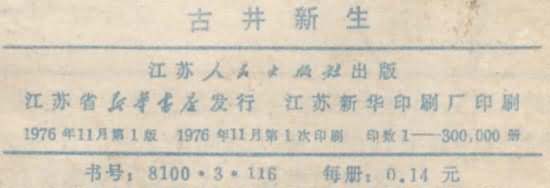 古井新生
江苏人民出版社出版
江苏省新华书店发行 江苏新华印刷厂印刷
1976年11月第1版 1976年11月第1次印刷 印数1——300,000册
书号：8100·3·116 每册：0.14元